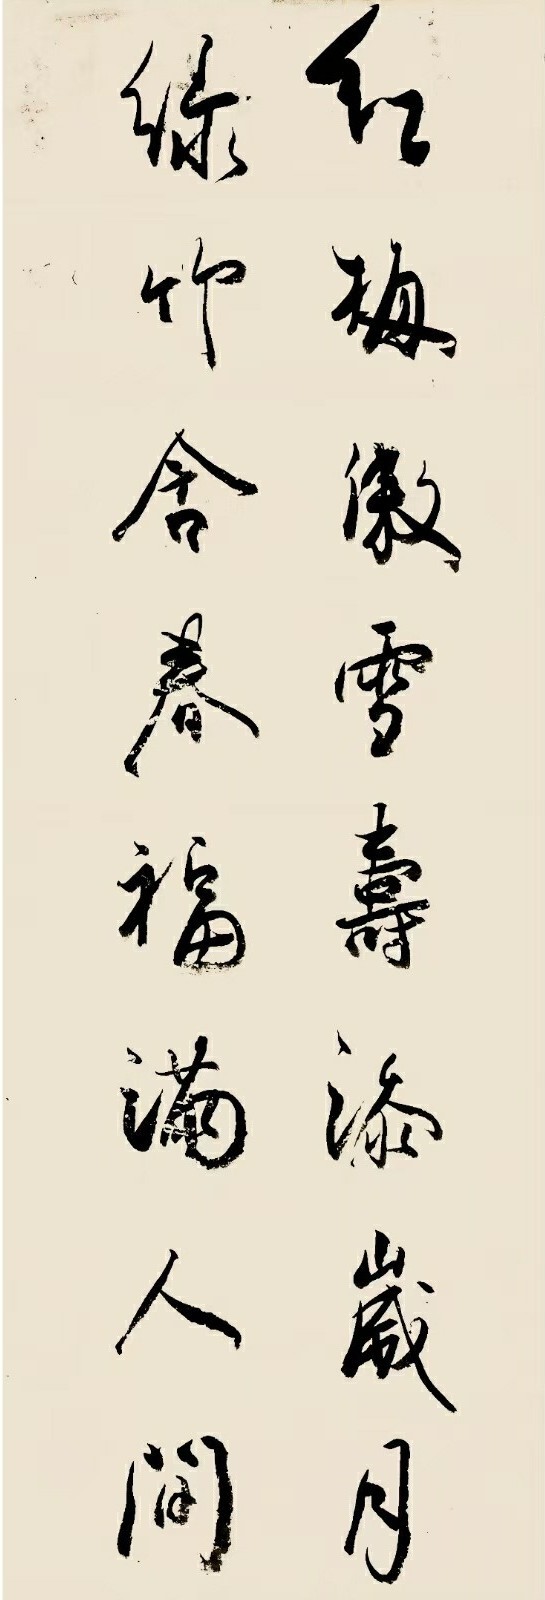 红梅傲雪壽添歲月
绿竹含春福满人间